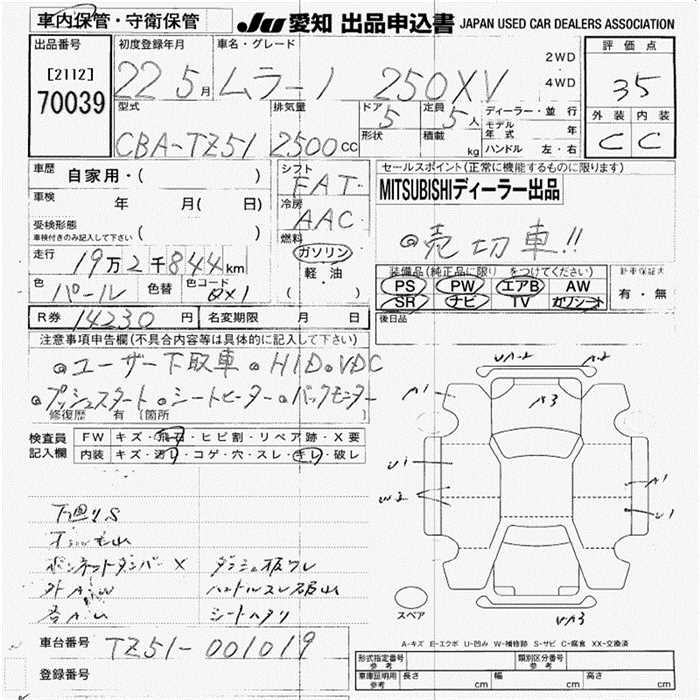 車内保管・守衛保管
JU 愛知 出品申込書 JAPAN USED CAR DEALERS ASSOCIATION
出品番号
[2112]
70039
初度登録年月
22 5月
車名・グレード
ムラーノ 250XV
2WD
・
4WD
評価点
35
外装 内装
C C
型式
CBA-TZ51
排気量
2500cc
ドア
5
形状
定員
5人
積載
kg
ディーラー・並行
モデル年式 年
ハンドル 左・右
車歴 自家用・( )
車検 年 月( 日)
受検形態
車検付きのみ記入して下さい ( )
走行 19万2千844km
色 パール 色替 色コード QX1
シフト
FAT
冷房
AAC
燃料
ガソリン
・
軽・油
( )
セールスポイント(正常に機能するものに限ります)
MITSUBISHIディーラー出品
◎売切車!!
装備品(純正品に限り をつけてください)
PS PW エアB AW
SR ナビ TV カワシート
新車保証書
有・無
後日品
R券 14230円 名変期限 月 日
注意事項申告欄(不具合内容等は具体的に記入して下さい)
◎ユーザー下取車 ◎HID◎VDC
◎プッシュスタート ◎シートヒーター ◎バックモニター
修復歴 有 [箇所 ]
検査員
記入欄
FW キズ・飛石・ヒビ割・リペア跡・X要
内装 キズ・汚レ・コゲ・穴・スレ・キレ・破レ
下廻りS
ボンネットダンパー X
シートヘタリ
A1
UA-2
A-2
A3
U1
W2
A1
U1
スペア
UA3
車台番号 TZ51-001019
登録番号
A-キズ E-エクボ U-凹み W-補修跡 S-サビ C-腐食 XX-交換済
形式指定番号
参考
類別区分番号
参考
車庫証明用
参考
長さ cm 幅 cm 高さ cm